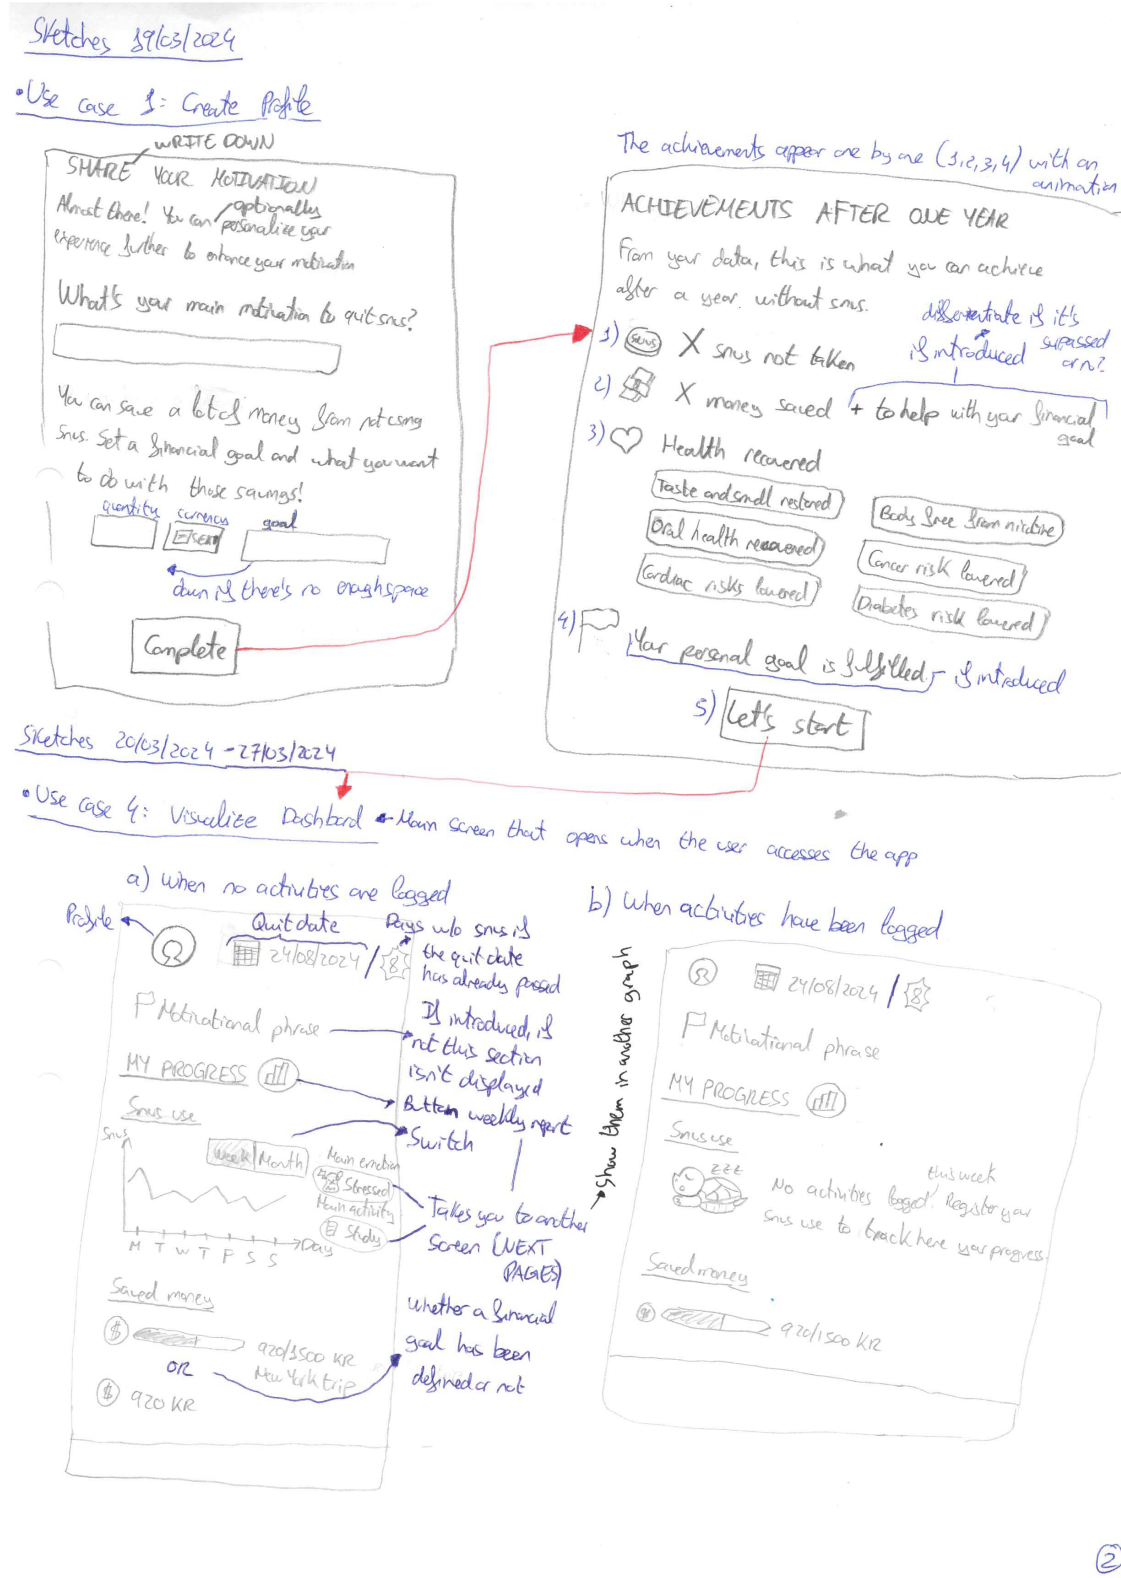 Sketches 19/03/2024
• Use case 1: Create Profile
WRITE DOWN
SHARE YOUR MOTIVATION
optionally
Almost there! You can personalize your
experience further to enhance your motivation
What's your main motivation to quit snus?
You can save a lot of money from not using
snus. Set a financial goal and what you want
to do with those savings!
quantity currency goal
SEK
down if there's no enough space
Complete
The achievements appear one by one (1,2,3,4) with an
animation
ACHIEVEMENTS AFTER ONE YEAR
From your data, this is what you can achieve
after a year without snus.
differentiate if it's
supassed
or n?
if introduced
1) snus X snus not taken
2) X money saved + to help with your financial
goal
3) Health recovered
Taste and smell restored
Body free from nicotine
Oral health recovered
Cancer risk lowered
Cardiac risks lowered
Diabetes risk lowered
4) Your personal goal is fulfilled - if introduced
5) Let's start
Sketches 20/03/2024 - 27/03/2024
• Use case 4: Visualize Dashbord Main screen that opens when the user accesses the app
a) When no activities are logged
Profile
Quit date
24/08/2024 / 8
Days w/o snus if
the quit date
has already passed
Motivational phrase
If introduced, if
not this section
isn't displayed
MY PROGRESS
Button weekly report
Snus use
Switch
Snus
Week Month
Main emotion
Stressed
Main activity
Study
M T W T F S S
Day
Takes you to another
screen (NEXT
PAGES)
Show them in another graph
Saved money
$ 920/1500 KR
New York trip
OR
$ 920 KR
Whether a financial
goal has been
defined or not
b) When activities have been logged
24/08/2024 / 8
Motivational phrase
MY PROGRESS
Snus use
zzz
this week
No activities logged! Register your
snus use to track here your progress.
Saved money
$ 920/1500 KR
2